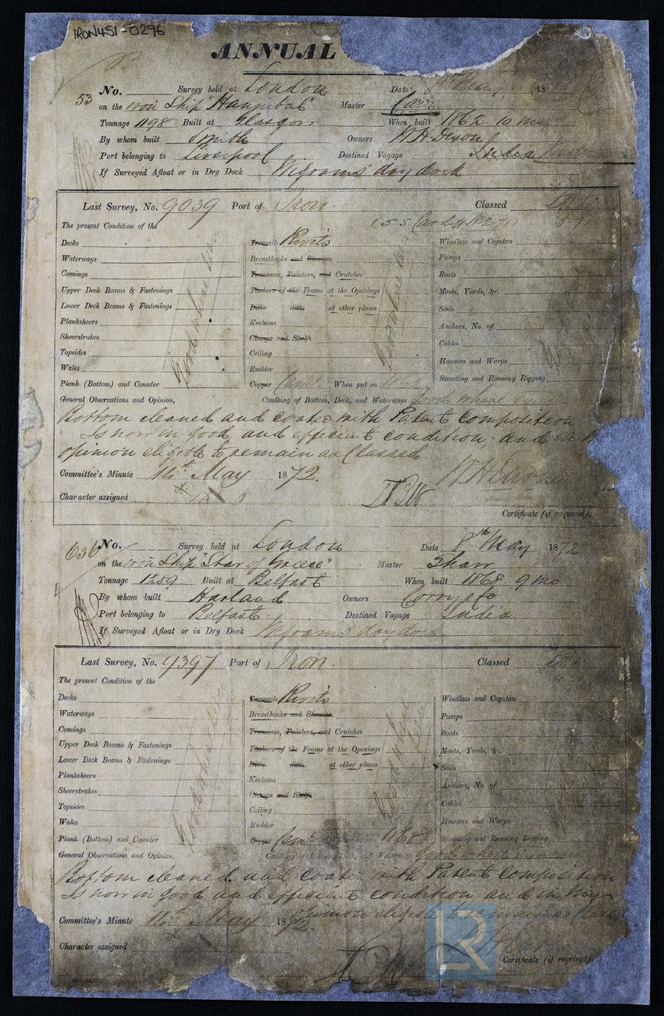 IRON451-0296
ANNUAL
53 No. Survey held at London Date 18
on the iron Ship "Hannibal" Master
Tonnage 1198 Built at Glasgow When built 1862 10 mo
By whom built Smith Owners W H Dixon
Port belonging to Liverpool Destined Voyage India
If Surveyed Afloat or in Dry Dock Wigram's dry dock
Last Survey, No. 9039 Port of Iron Classed
The present Condition of the
Decks
Waterways
Comings
Upper Deck Beams & Fastenings
Lower Deck Beams & Fastenings
Planksheers
Sheerstrakes
Topsides
Wales
Plank (Bottom) and Counter
Treenails Rivets
Breasthooks and Stemson
Transoms, Pointers, and Crutches
Timbers of the Frame at the Openings
Ditto ditto at other places
Keelsons
Clamps and Shelfs
Ceiling
Rudder
Copper Cem't When put on
Windlass and Capstan
Pumps
Boats
Masts, Yards, &c.
Sails
Anchors, No. of
Cables
Hawsers and Warps
Standing and Running Rigging
Good where seen
General Observations and Opinion, Caulking of Bottom, Deck, and Waterways Good where seen
Bottom cleaned and coated with Patent Composition
Is now in good and efficient condition and in
opinion eligible to remain as Classed
Committee's Minute May 1872.
Character assigned
Certificate (if required).
636 No. Survey held at London Date 8th May 1872
on the iron Ship "Star of Greece" Master Shaw
Tonnage 1289 Built at Belfast When built 1868. 9 mo
By whom built Harland Owners Corry & Co
Port belonging to Belfast Destined Voyage India
If Surveyed Afloat or in Dry Dock Wigram's dry dock
Last Survey, No. 9397 Port of Iron. Classed
The present Condition of the
Decks
Waterways
Comings
Upper Deck Beams & Fastenings
Lower Deck Beams & Fastenings
Planksheers
Sheerstrakes
Topsides
Wales
Plank (Bottom) and Counter
Good where seen
Treenails Rivets
Breasthooks and Stemson
Transoms, Pointers, and Crutches
Timbers of the Frame at the Openings
Ditto ditto at other places
Keelsons
Clamps and Shelfs
Ceiling
Rudder
Cem't 1868
Windlass and Capstan
Pumps
Boats
Masts, Yards, &c.
Sails
Anchors, No. of
Cables
Hawsers and Warps
Standing and Running Rigging
General Observations and Opinion, Caulking of Bottom, Deck, and Waterways Good where seen
Bottom cleaned and coated with Patent Composition
Is now in good and efficient condition and in my
opinion eligible to remain as
Committee's Minute May 1872
Character assigned
Certificate (if required).
LR